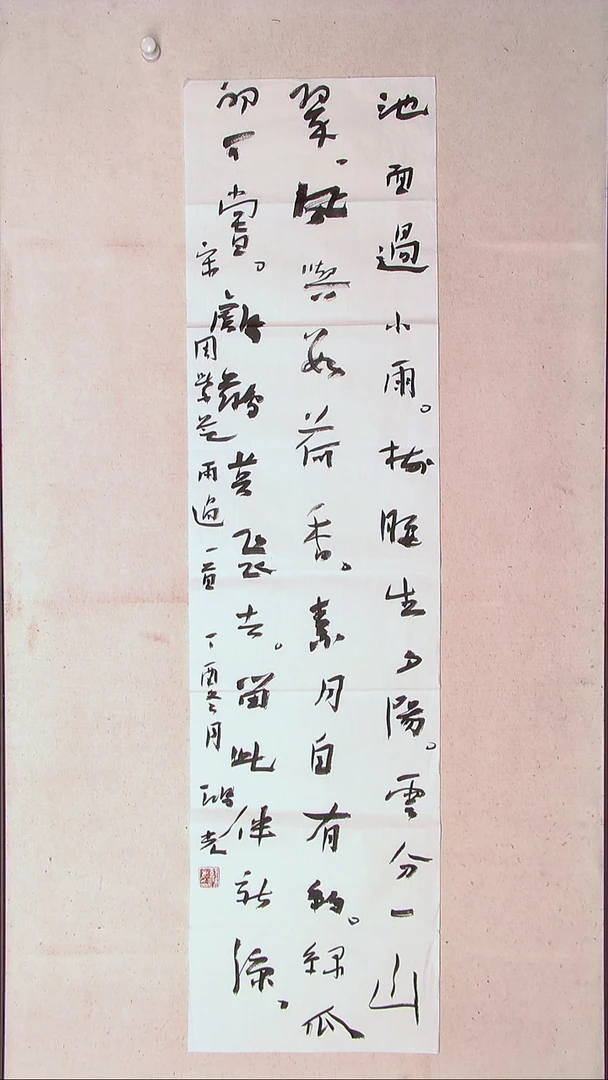 池面過小雨。樹腰生夕陽。雲分一山
翠、風與數荷香。素月自有約。綠瓜
初可嘗。鸕鶿莫飛去。留此伴新涼。
宋周紫芝雨過一首 丁酉 月